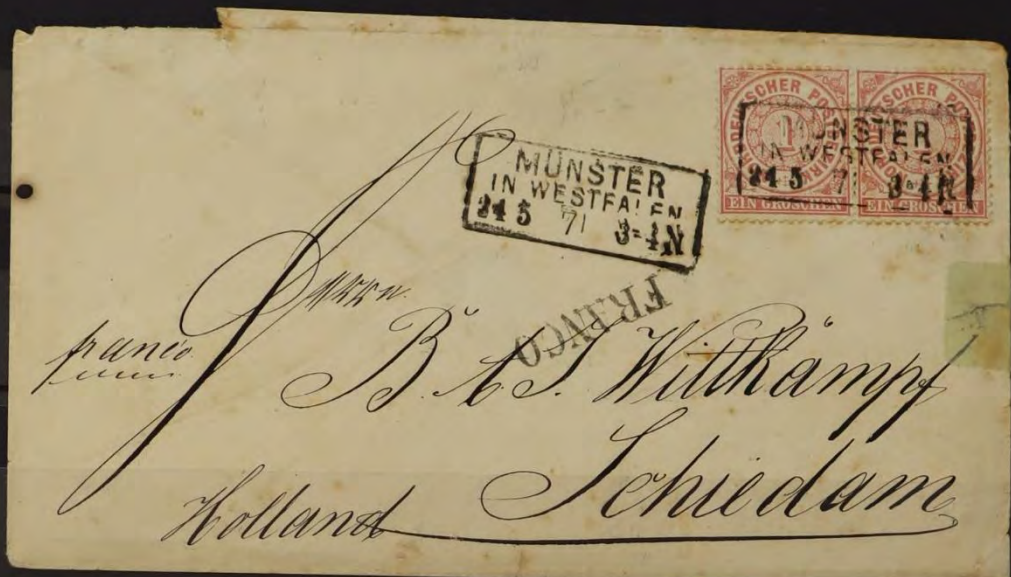 NORDDEUTSCHER POSTBEZIRK
1
EIN GROSCHEN
NORDDEUTSCHER POSTBEZIRK
1
EIN GROSCHEN
MÜNSTER
IN WESTFALEN
24 5 71 3-4 N
MÜNSTER
IN WESTFALEN
24 5 71 3-4 N
FRANCO
Herrn
franco
B. A. J. Wittkampf
Schiedam
Holland